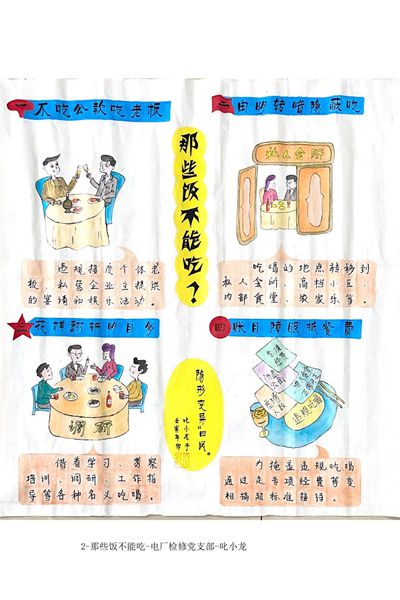 一不吃公款吃老板
二由明转暗隐蔽吃
那些饭不能吃？
私人会所
违规接受个体老
板、私营企业主提供
的宴请和娱乐活动
吃喝的地点转移到
私人会所、高档小区、
内部食堂、农家乐等。
三花样翻新 目多
四账目障眼抵餐费
调研
违规吃喝
隐形变异
叱小龙
壬寅年
借着学习、考察
培训、调研、工作指
导等各种名义吃喝。
为掩盖违规吃喝
通过走专项经费等变
相搞超标准接待。
2-那些饭不能吃-电厂检修党支部-叱小龙